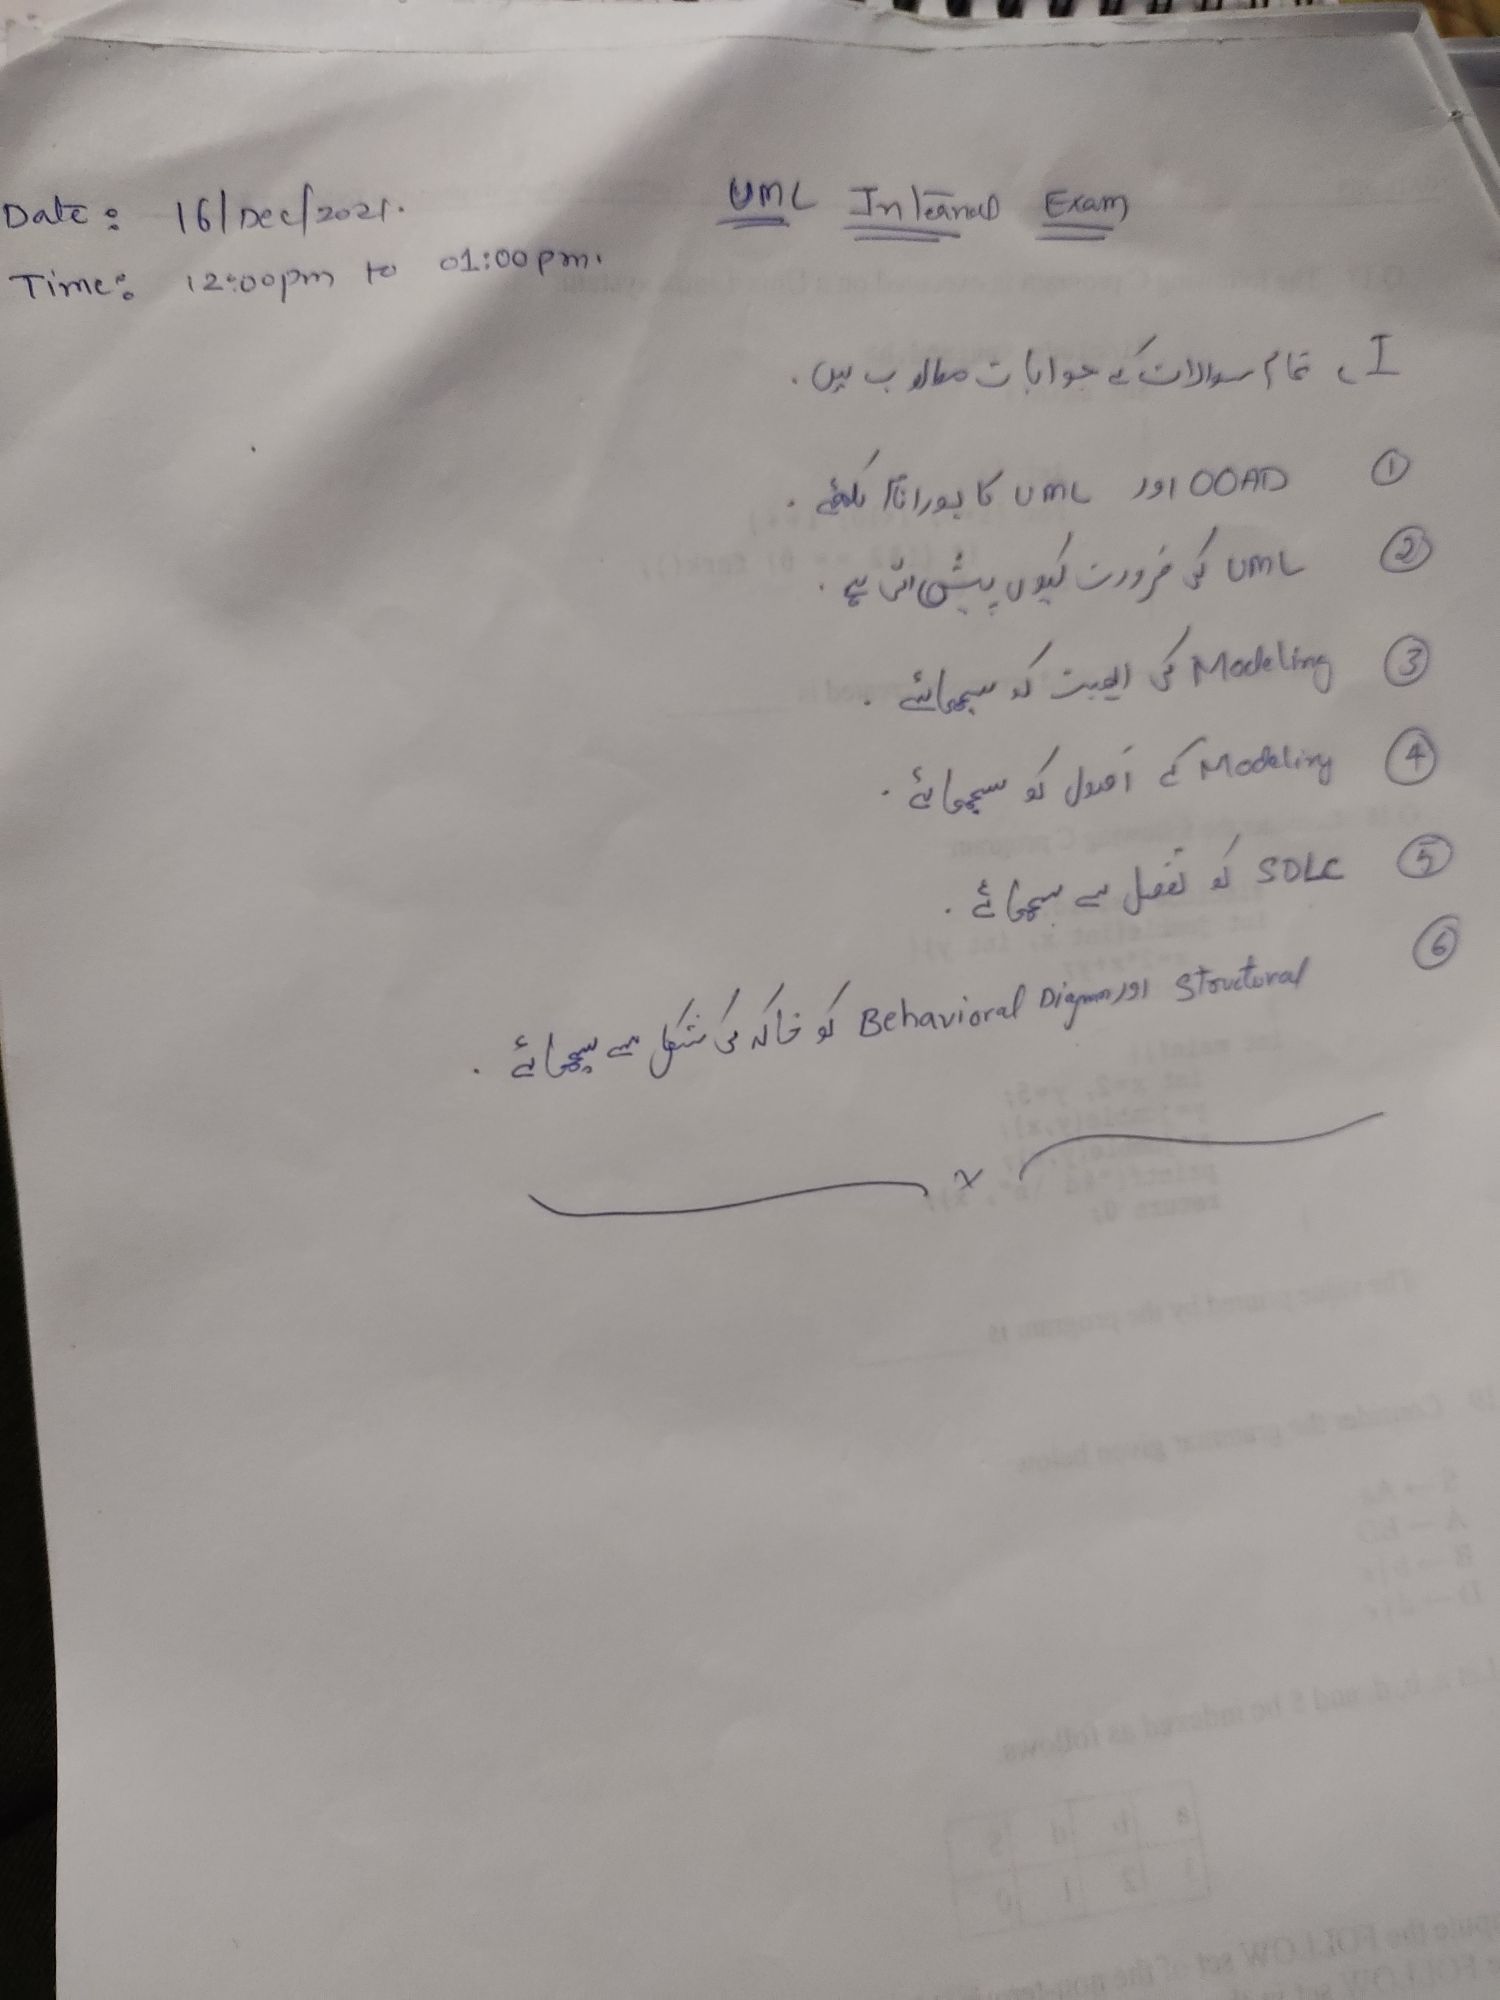 UML Internal Exam
Date: 16/Dec/2021.
Time: 12:00pm to 01:00pm.
I۔ تمام سوالات کے جوابات مطلوب ہیں.
① OOAD اور UML کا پورا نام لکھئے.
② UML کی ضرورت کیوں پیش اتی ہے.
③ Modeling کی اہمیت کو سمجھائے.
④ Modeling کے اُصول کو سمجھائے.
⑤ SDLC کو تفصل سے سمجھائے.
⑥ Structural اور Behavioral Diagram کو خاکہ کی شکل سے سمجھائے.
x